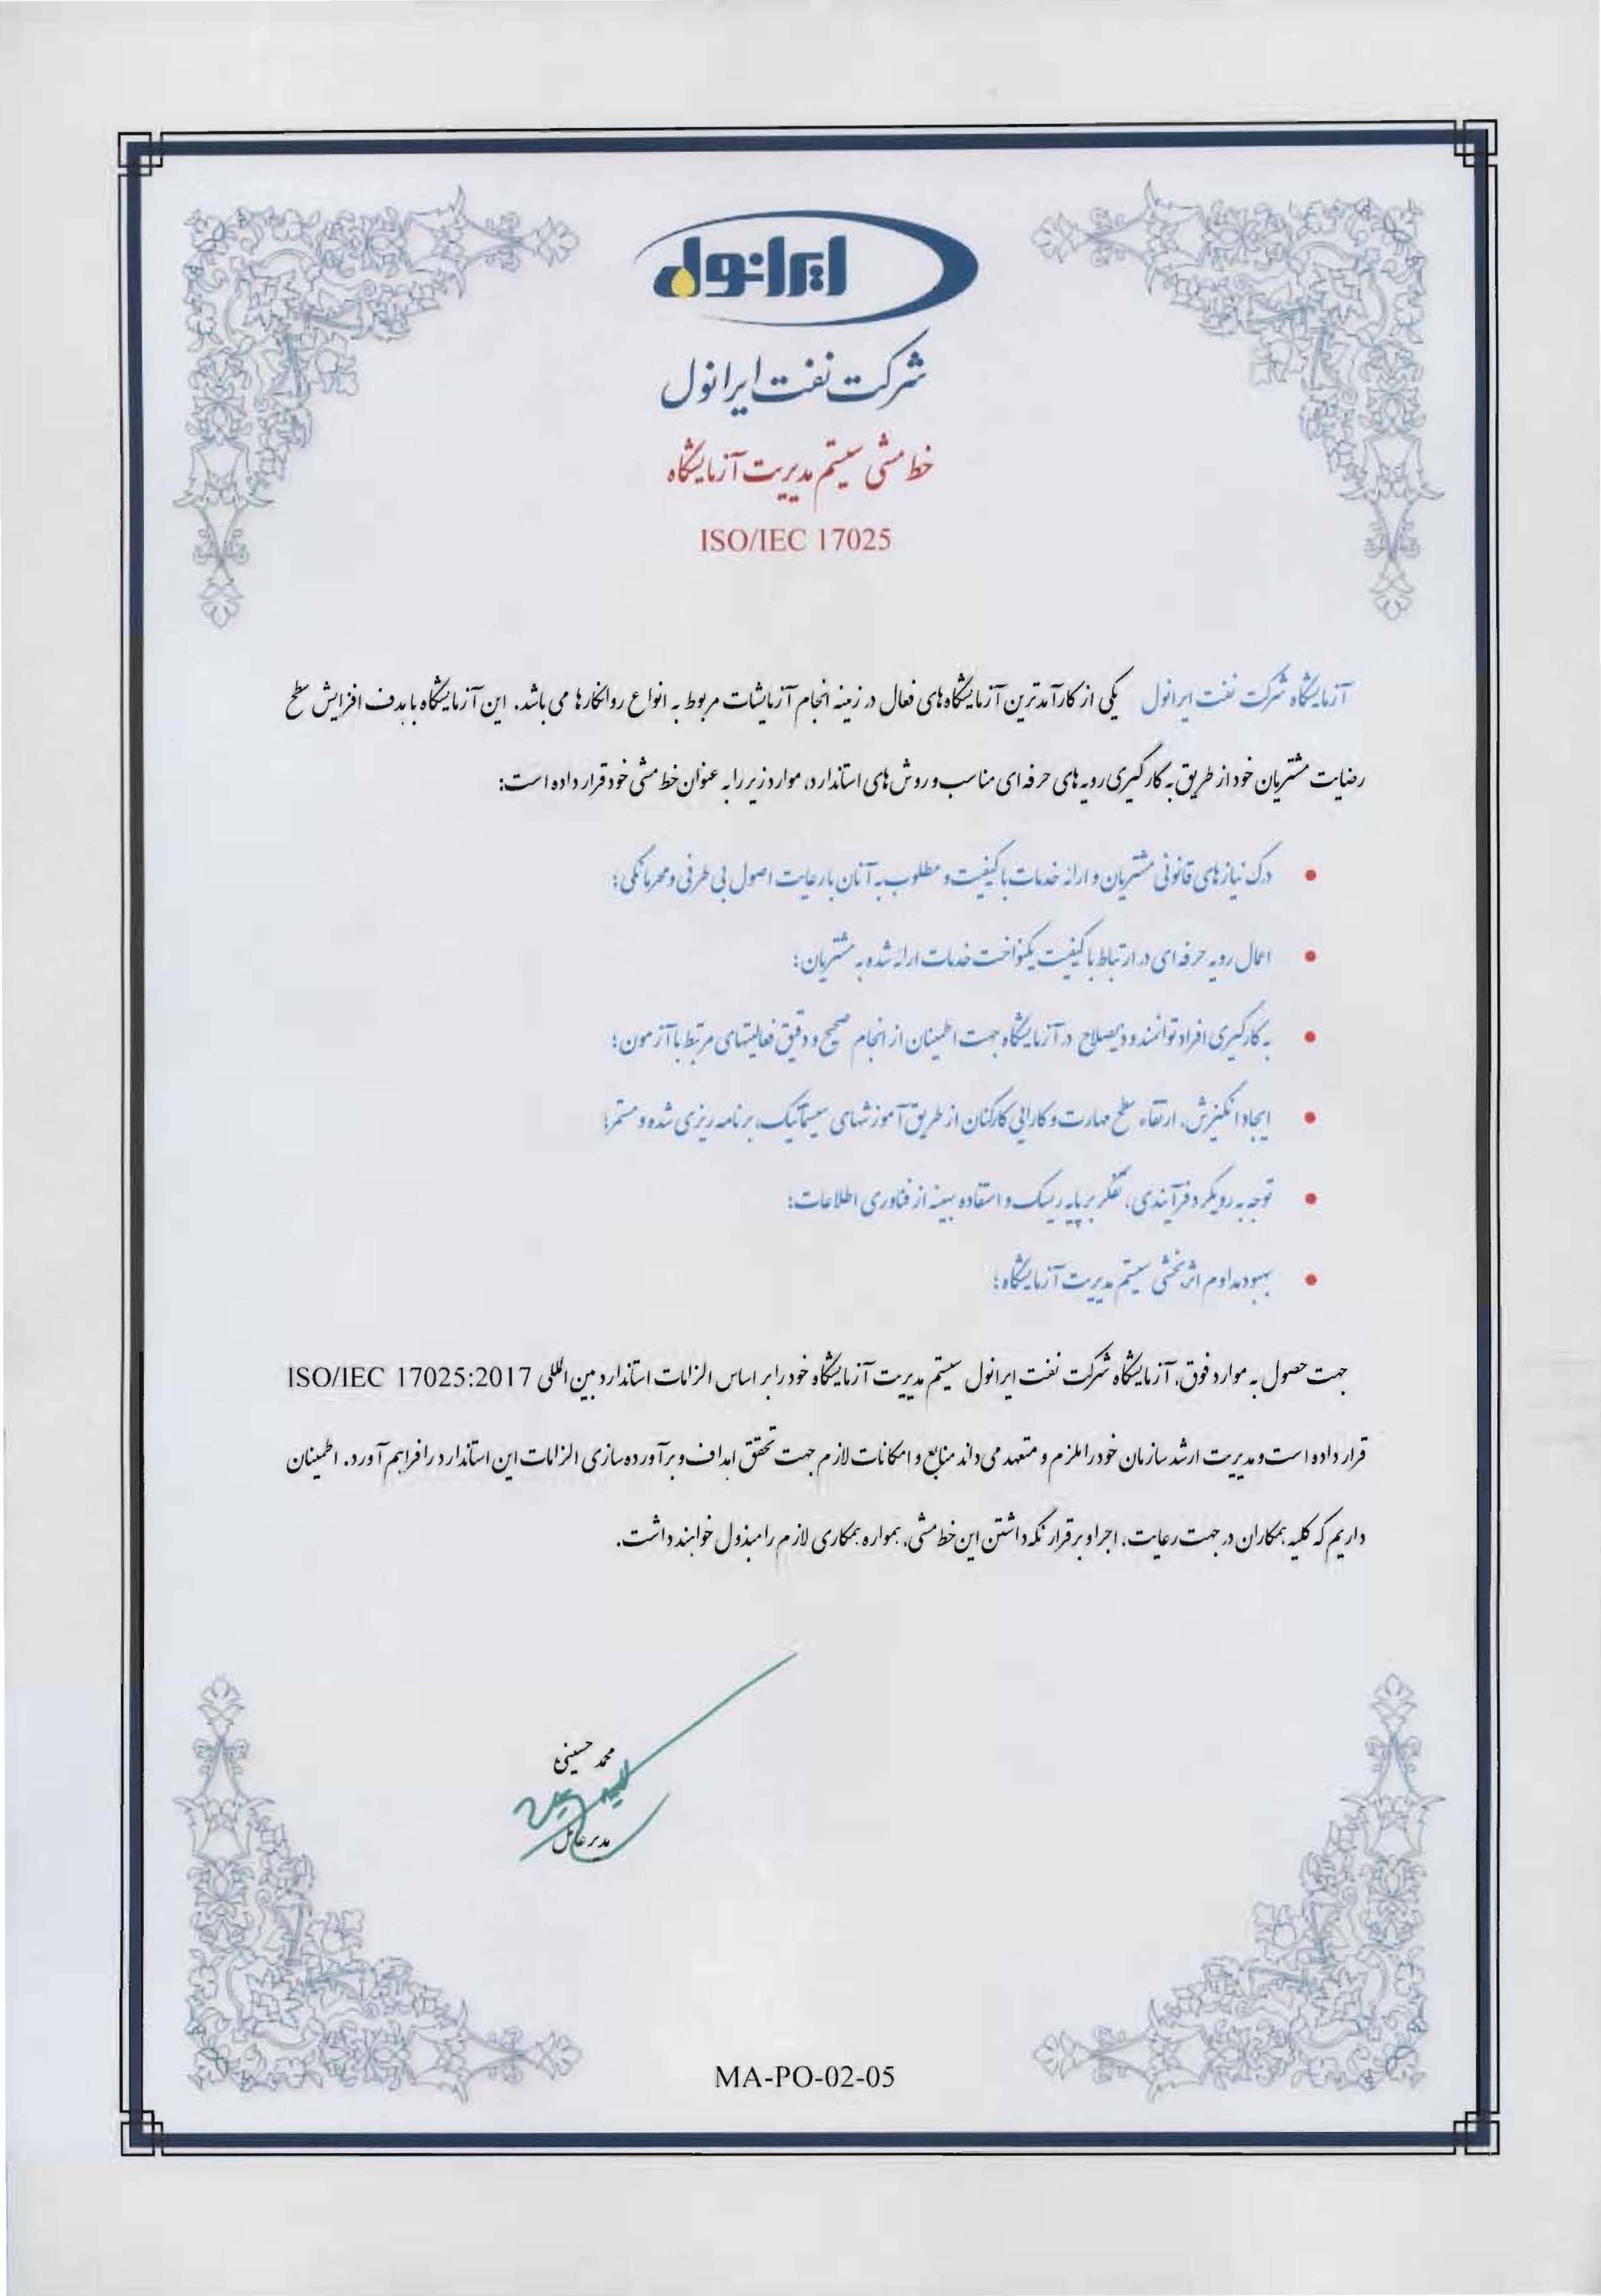 ایرانول
شرکت نفت ایرانول
خط مشی سیستم مدیریت آزمایشگاه
ISO/IEC 17025
آزمایشگاه شرکت نفت ایرانول یکی از کارآمدترین آزمایشگاه‌های فعال در زمینه انجام آزمایشات مربوط به انواع روانکارها می باشد. این آزمایشگاه با هدف افزایش سطح
رضایت مشتریان خود از طریق به کارگیری رویه های حرفه ای مناسب و روش های استاندارد، موارد زیر را به عنوان خط مشی خود قرار داده است:
• درک نیازهای قانونی مشتریان و ارائه خدمات با کیفیت و مطلوب به آنان با رعایت اصول بی طرفی و محرمانگی؛
• اعمال رویه حرفه ای در ارتباط با کیفیت یکنواخت خدمات ارائه شده به مشتریان؛
• به کارگیری افراد توانمند و ذیصلاح در آزمایشگاه جهت اطمینان از انجام صحیح و دقیق فعالیتهای مرتبط با آزمون؛
• ایجاد انگیزش، ارتقاء سطح مهارت و کارایی کارکنان از طریق آموزشهای سیستماتیک، برنامه ریزی شده و مستمر؛
• توجه به رویکرد فرآیندی، تفکر بر پایه ریسک و استفاده بهینه از فناوری اطلاعات؛
• بهبود مداوم اثربخشی سیستم مدیریت آزمایشگاه؛
جهت حصول به موارد فوق، آزمایشگاه شرکت نفت ایرانول سیستم مدیریت آزمایشگاه خود را بر اساس الزامات استاندارد بین المللی ISO/IEC 17025:2017
قرار داده است و مدیریت ارشد سازمان خود را ملزم و متعهد می داند منابع و امکانات لازم جهت تحقق اهداف و برآورده سازی الزامات این استاندارد را فراهم آورد. اطمینان
داریم که کلیه همکاران در جهت رعایت، اجرا و برقرار نگه داشتن این خط مشی، همواره همکاری لازم را مبذول خواهند داشت.
محمد حسینی
مدیر عامل
MA-PO-02-05